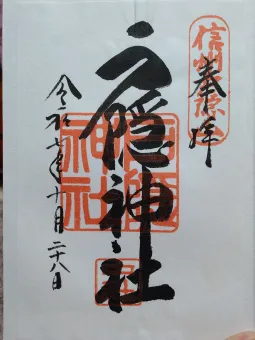 奉拝
戸隠神社
令和七年十月二十八日